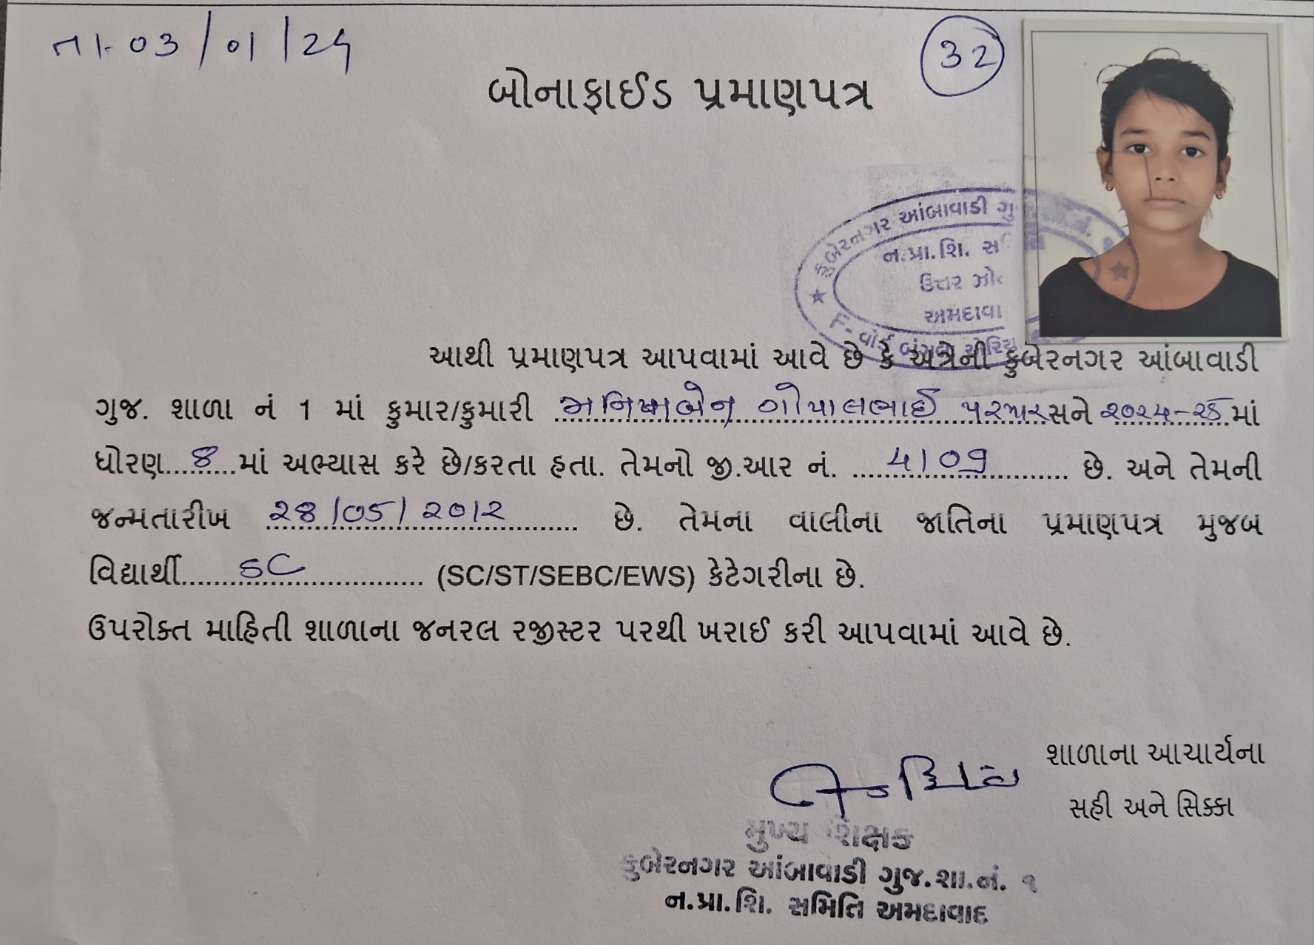 તા. 03/01/25
32
બોનાફાઈડ પ્રમાણપત્ર
કુબેરનગર આંબાવાડી ગુ
ન.પ્રા.શિ. સ
ઉત્તર ઝો
અમદાવા
F-વોર્ડ બંગલા એરિયા
આથી પ્રમાણપત્ર આપવામાં આવે છે કે અત્રેની કુબેરનગર આંબાવાડી
ગુજ. શાળા નં 1 માં કુમાર/કુમારી મનિષાબેન ગોપાલભાઈ પરમાર સને ૨૦૨૪-૨૫ માં
ધોરણ 8 માં અભ્યાસ કરે છે/કરતા હતા. તેમનો જી.આર નં. 4109 છે. અને તેમની
જન્મતારીખ ૨8/05/૨૦1૨ છે. તેમના વાલીના જાતિના પ્રમાણપત્ર મુજબ
વિદ્યાર્થી SC (SC/ST/SEBC/EWS) કેટેગરીના છે.
ઉપરોક્ત માહિતી શાળાના જનરલ રજીસ્ટર પરથી ખરાઈ કરી આપવામાં આવે છે.
શાળાના આચાર્યના
સહી અને સિક્કા
મુખ્ય શિક્ષક
કુબેરનગર આંબાવાડી ગુજ.શા.નં. ૧
ન.પ્રા.શિ. સમિતિ અમદાવાદ